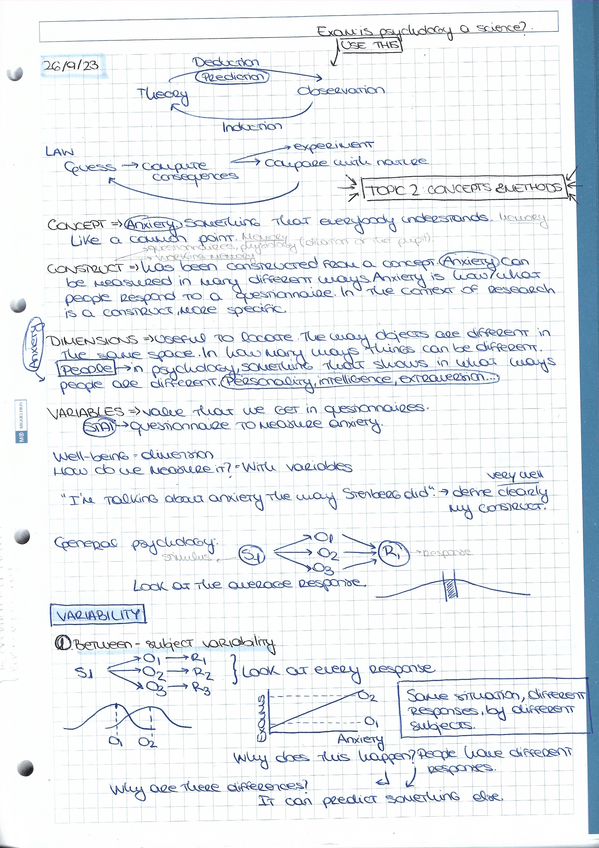 Exam: is psychology a science?
USE THIS
26/9/23
Deduction
Prediction
Theory
Observation
Induction
LAW
Guess → compute consequences
→ experiment
→ compare with nature
TOPIC 2: CONCEPTS & METHODS
CONCEPT ⇒ Anxiety something that everybody understands. Memory
Like a common point. Memory
questionnaires, pupilology (dilation of the pupil).
→ working memory
CONSTRUCT ⇒ has been constructed from a concept. Anxiety can
be measured in many different ways. Anxiety is how/what
people respond to a questionnaire. In the context of research
is a construct, more specific.
Anxiety
DIMENSIONS ⇒ useful to locate the way objects are different in
the same space. In how many ways things can be different.
People → in psychology, something that shows in what ways
people are different. Personality, intelligence, extraversion...
VARIABLES ⇒ value that we get in questionnaires.
STAI → questionnaire to measure anxiety.
Well-being = dimension
How do we measure it? = With variables
very well
"I'm talking about anxiety the way Stenberg did". → define clearly
my construct.
General psychology:
stimulus
S1
O1
O2
O3
Ri
→ response
Look at the average response.
VARIABILITY
① Between-subject variability
S1
O1 → R1
O2 → R2
O3 → R3
Look at every response
O1 O2
Exams
Anxiety
O2
O1
Same situation, different
responses, by different
subjects.
Why does this happen? People have different
responses.
Why are there differences?
It can predict something else.